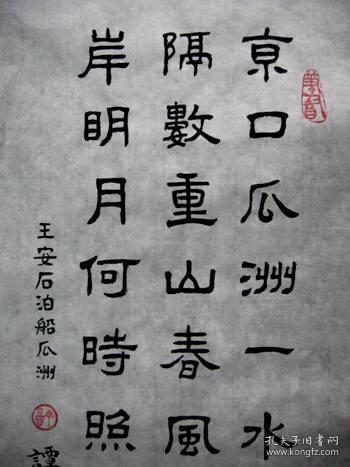 京口瓜洲一水
隔數重山春風
岸眀月何時照
王安石泊船瓜洲
譚
孔夫子旧书网
www.kongfz.com